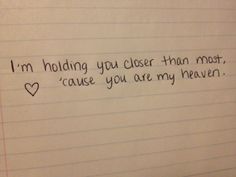 I'm holding you closer than most,
'cause you are my heaven.